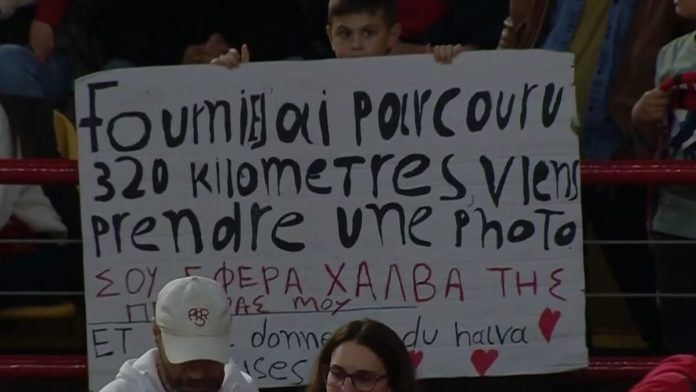 FourniEJ ai parcouru
320 kilometres, viens
prendre une photo
ΣΟΥ ΕΦΕΡΑ ΧΑΛΒΑ ΤΗΣ
ΜΟΥ
ET donne du halva